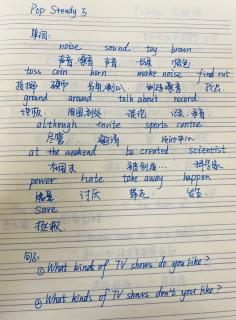 Pop Steady 5
单词:
noise sound toy brown
声音,噪音 声音 玩具 棕色
toss coin horn make noise find out
投掷 硬币 制造噪音 找出
ground around talk about record
地板 周围,到处 谈论
although invite sports centre
尽管 邀请 运动中心
at the weekend be created scientist
在周末 被创造 科学家
power hate take away happen
能量 讨厌 带走 发生
save
拯救
问句:
① What kinds of TV shows do you like?
② What kinds of TV shows don't you like?